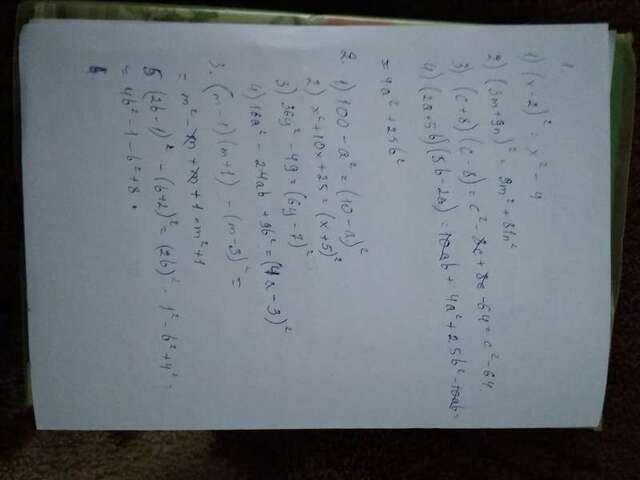 1.
1) (x-2)² = x² - 4
2) (3m+9n)² = 9m² + 81n²
3) (c+8)(c-8) = c² - 8c + 8c - 64 = c² - 64.
4) (2a+5b)(5b-2a) = 10ab + 4a² + 25b² - 10ab =
= 4a² + 25b²
2. 1) 100 - a² = (10-a)²
2) x² + 10x + 25 = (x+5)²
3) 36y² - 49 = (6y-7)²
4) 16a² - 24ab + 9b² = (4a-3)²
3. (m-1)(m+1) - (m-3)² =
= m² - m + m + 1 = m² + 1
5 (2b-1)² - (b+2)² = (2b)² - 1² - b² + 4² =
= 4b² - 1 - b² + 8